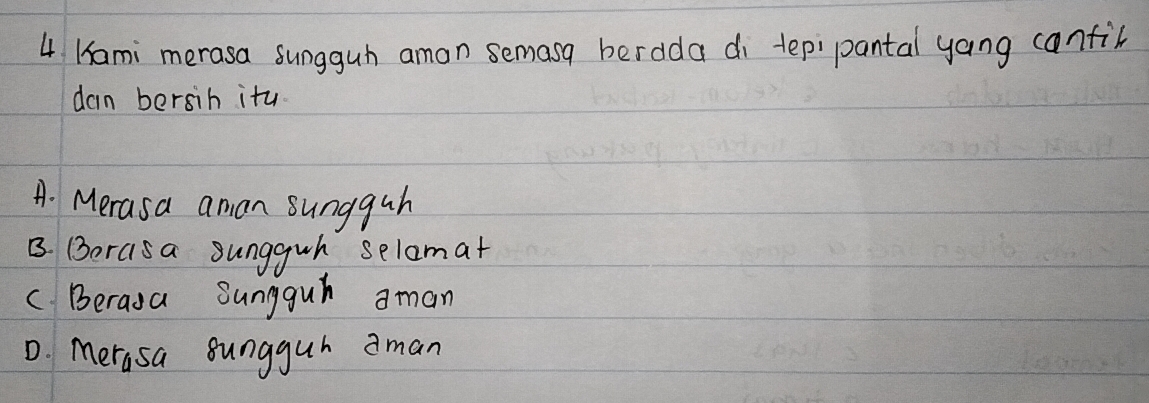 4. Kami merasa sungguh aman semasa berada di tepi pantai yang cantik
dan bersih itu.
A. Merasa aman sungguh
B. Berasa sungguh selamat
C. Berasa sungguh aman
D. Merasa sungguh aman